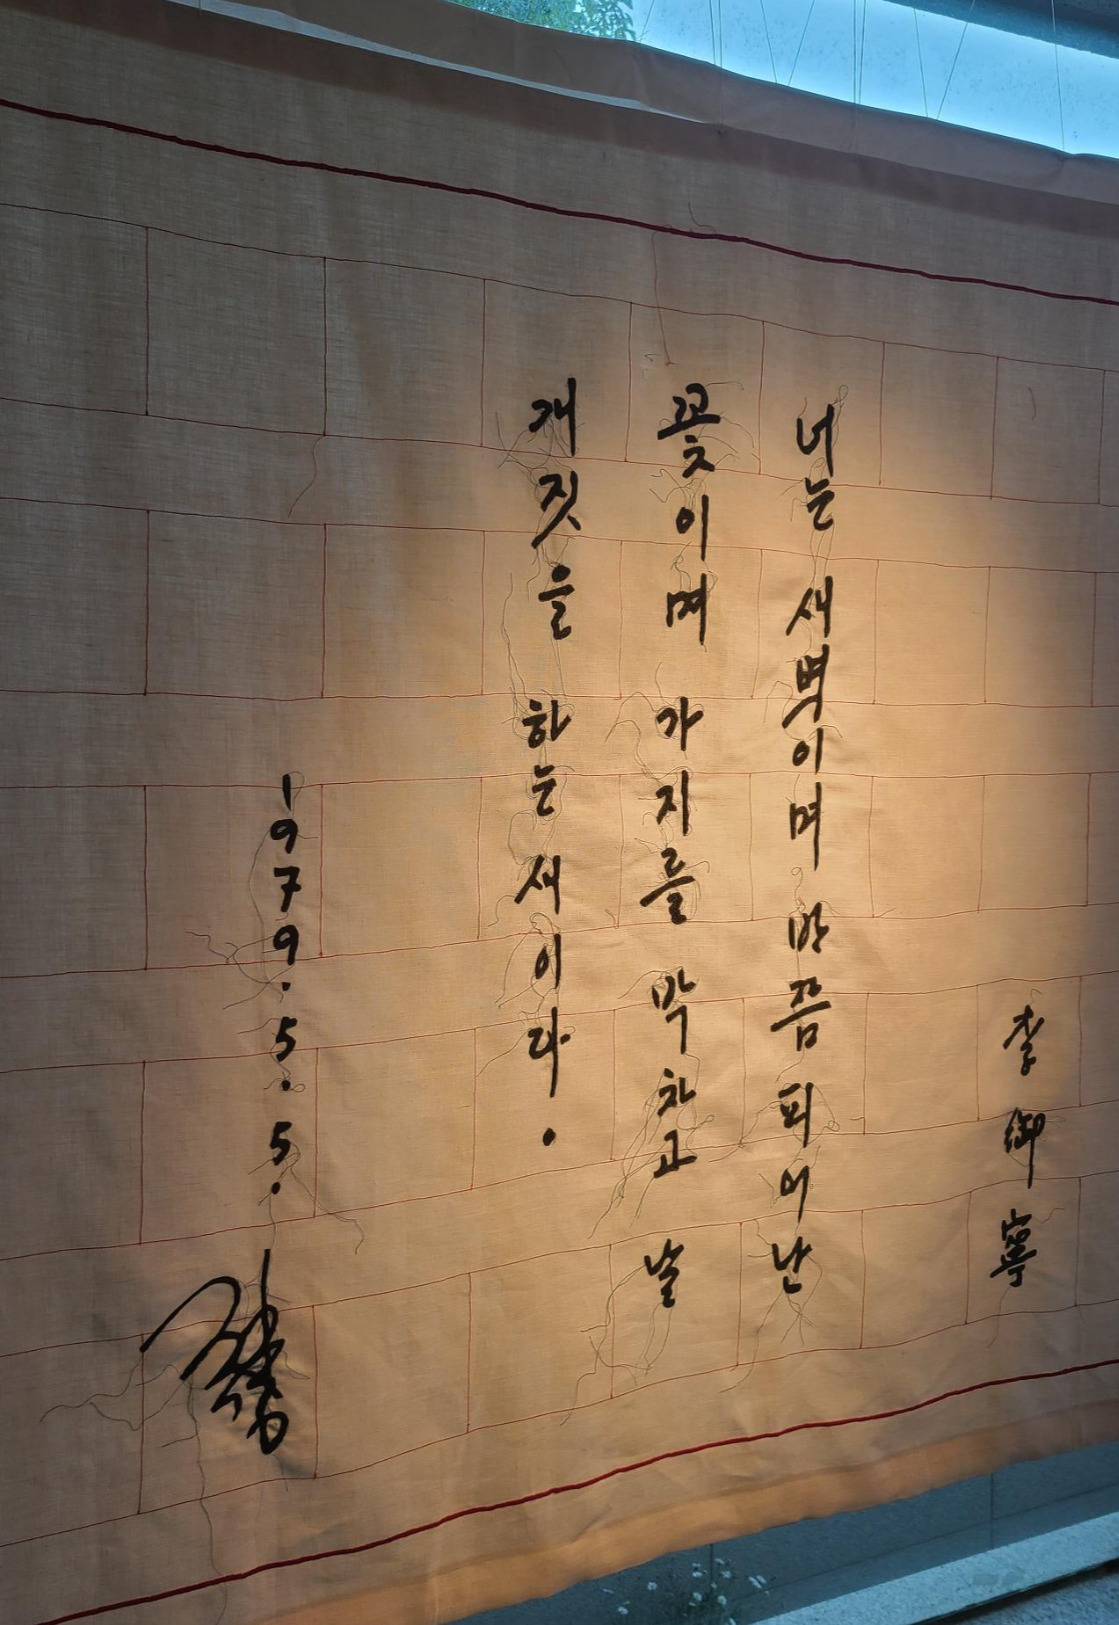 李御寧
너는 새벽이며 반쯤 피어난
꽃이며 가지를 막 차고 날
개짓을 하는 새이다.
1979.5.5.